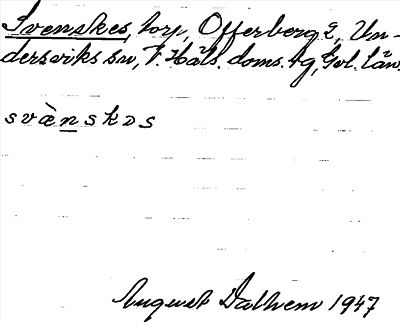 Svenskes, torp, Offerberg 2, Un-
dersviks sn, V. Häls. doms.tg, Gvl. län.
svànskəs
August Dalhem 1947